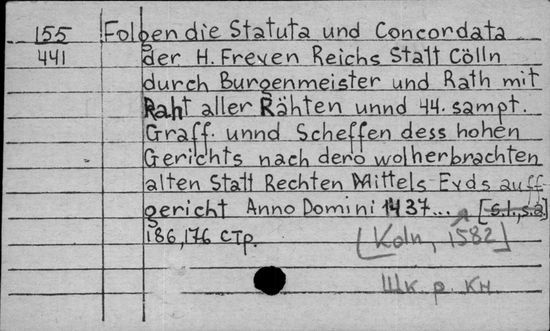 155 Folgen die Statuta und Concordata
441 der H. Freyen Reichs Statt Cölln
durch Burgenmeister und Rath mit
Raht aller Rähten unnd 44. sampt.
Graff. unnd Scheffen dess hohen
Gerichts nach dero wolherbrachten
alten Statt Rechten Mittels Eyds auff-
gericht Anno Domini 1437... [s.l., s.a]
186,176 стр. [Koln, 1582]
Шк. р. кн.